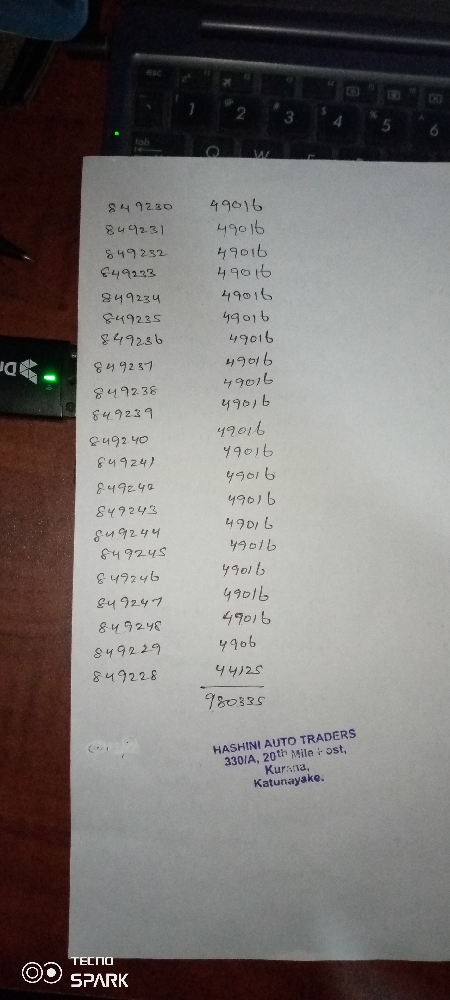 esc
1 2 3 4 5 6
tab Q W
849230 49016
849231 49016
849232 49016
849233 49016
849234 49016
849235 49016
849236 49016
849237 49016
849238 49016
849239 49016
849240 49016
849241 49016
849242 49016
849243 49016
849244 49016
849245 49016
849246 49016
849247 49016
849248 49016
849229 4906
849228 44125
980335
HASHINI AUTO TRADERS
330/A, 20th Mile Post,
Kurana,
Katunayake.
TECNO
SPARK